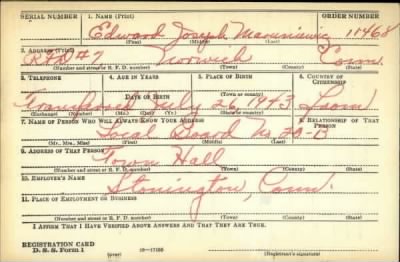 SERIAL NUMBER 1. NAME (Print) ORDER NUMBER
Edward Joseph 11468
(First) (Middle) (Last)
2. ADDRESS (Print)
RFD #7 Norwich Conn.
(Number and street or R. F. D. number) (Town) (County) (State)
3. TELEPHONE 4. AGE IN YEARS 5. PLACE OF BIRTH 6. COUNTRY OF CITIZENSHIP
DATE OF BIRTH (Town or county)
Transferred July 26, 1943 From
(Exchange) (Number) (Mo.) (Day) (Yr.) (State or country)
7. NAME OF PERSON WHO WILL ALWAYS KNOW YOUR ADDRESS 8. RELATIONSHIP OF THAT PERSON
Local Board No 20-B
(Mr., Mrs., Miss) (First) (Middle) (Last)
9. ADDRESS OF THAT PERSON
Town Hall
(Number and street or R. F. D. number) (Town) (County) (State)
10. EMPLOYER'S NAME
Stonington, Conn.
11. PLACE OF EMPLOYMENT OR BUSINESS
(Number and street or R. F. D. number) (Town) (County) (State)
I AFFIRM THAT I HAVE VERIFIED ABOVE ANSWERS AND THAT THEY ARE TRUE.
REGISTRATION CARD
D. S. S. Form 1
(over) (Registrant's signature)